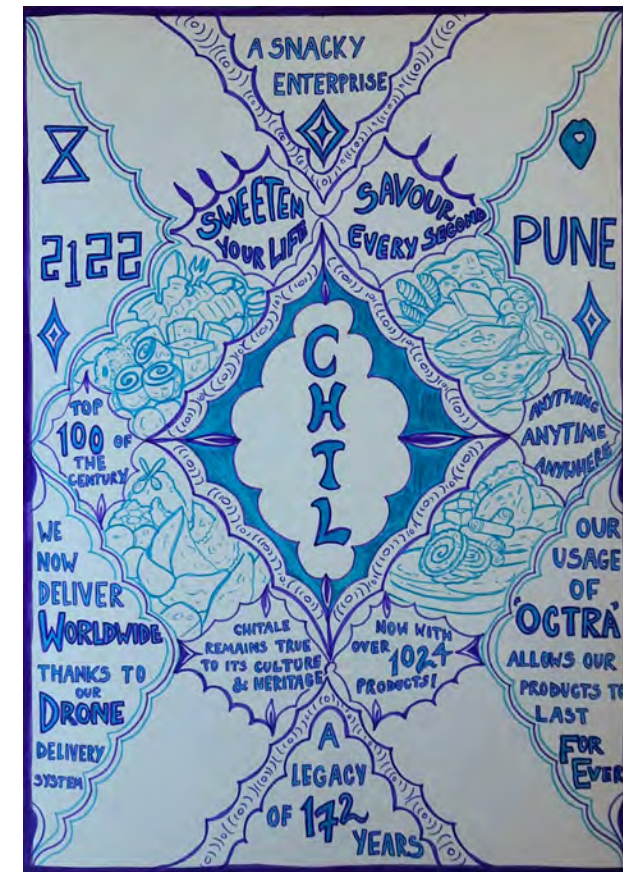 A SNACKY
ENTERPRISE
SWEETEN
YOUR LIFE
SAVOUR
EVERY SECOND
2122
PUNE
CHTL
TOP
100 OF
THE
CENTURY
ANYTHING
ANYTIME
ANYWHERE
WE
NOW
DELIVER
WORLDWIDE
THANKS TO
OUR
DRONE
DELIVERY
SYSTEM
CHITALE
REMAINS TRUE
TO ITS CULTURE
& HERITAGE
NOW WITH
OVER
1024
PRODUCTS!
OUR
USAGE
OF
'OCTRA'
ALLOWS OUR
PRODUCTS TO
LAST
FOR
EVER
A
LEGACY
OF 172
YEARS